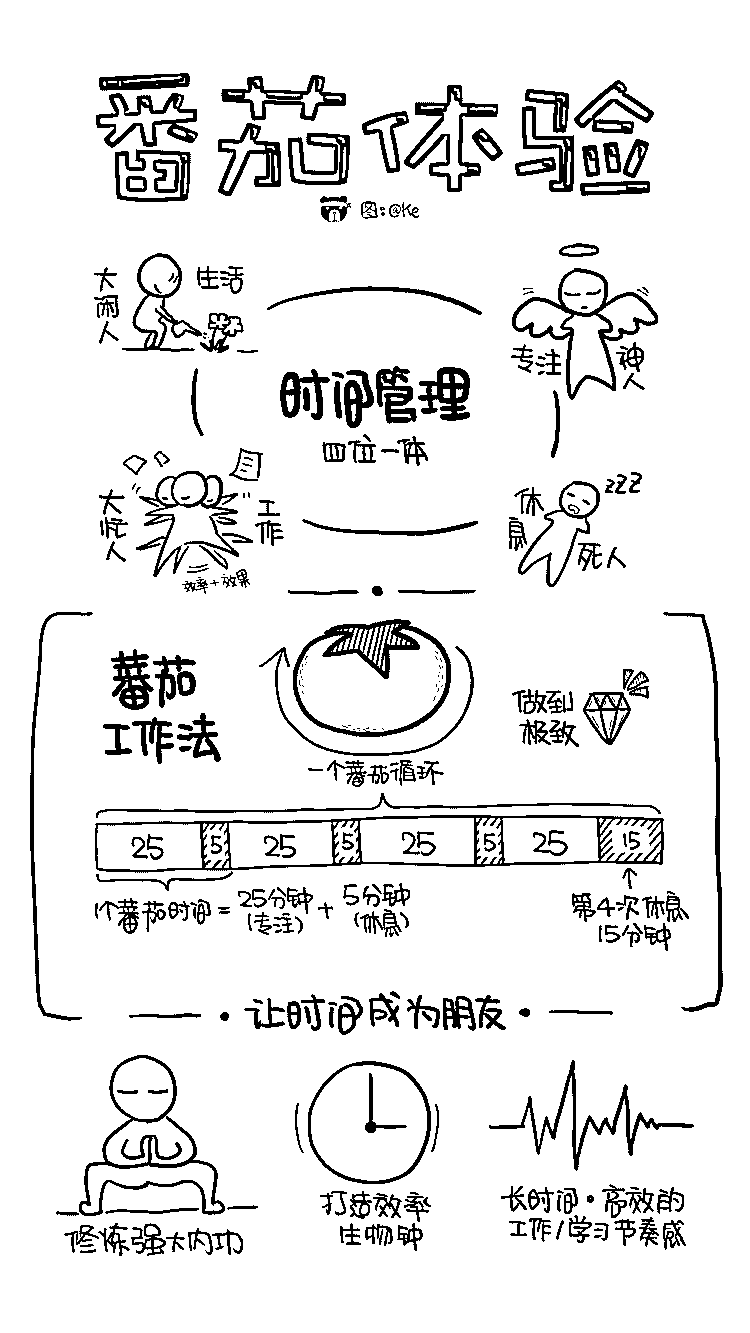 番茄体验
图:@Ke
大闲人
生活
专注
神人
时间管理
四位一体
大忙人
工作
效率+效果
休息
死人
zzZ
蕃茄
工作法
做到
极致
一个蕃茄循环
25 5 25 5 25 5 25 15
1个蕃茄时间=25分钟(专注)+5分钟(休息)
第4次休息
15分钟
让时间成为朋友
修炼强大内功
打造效率
生物钟
长时间·高效的
工作/学习节奏感